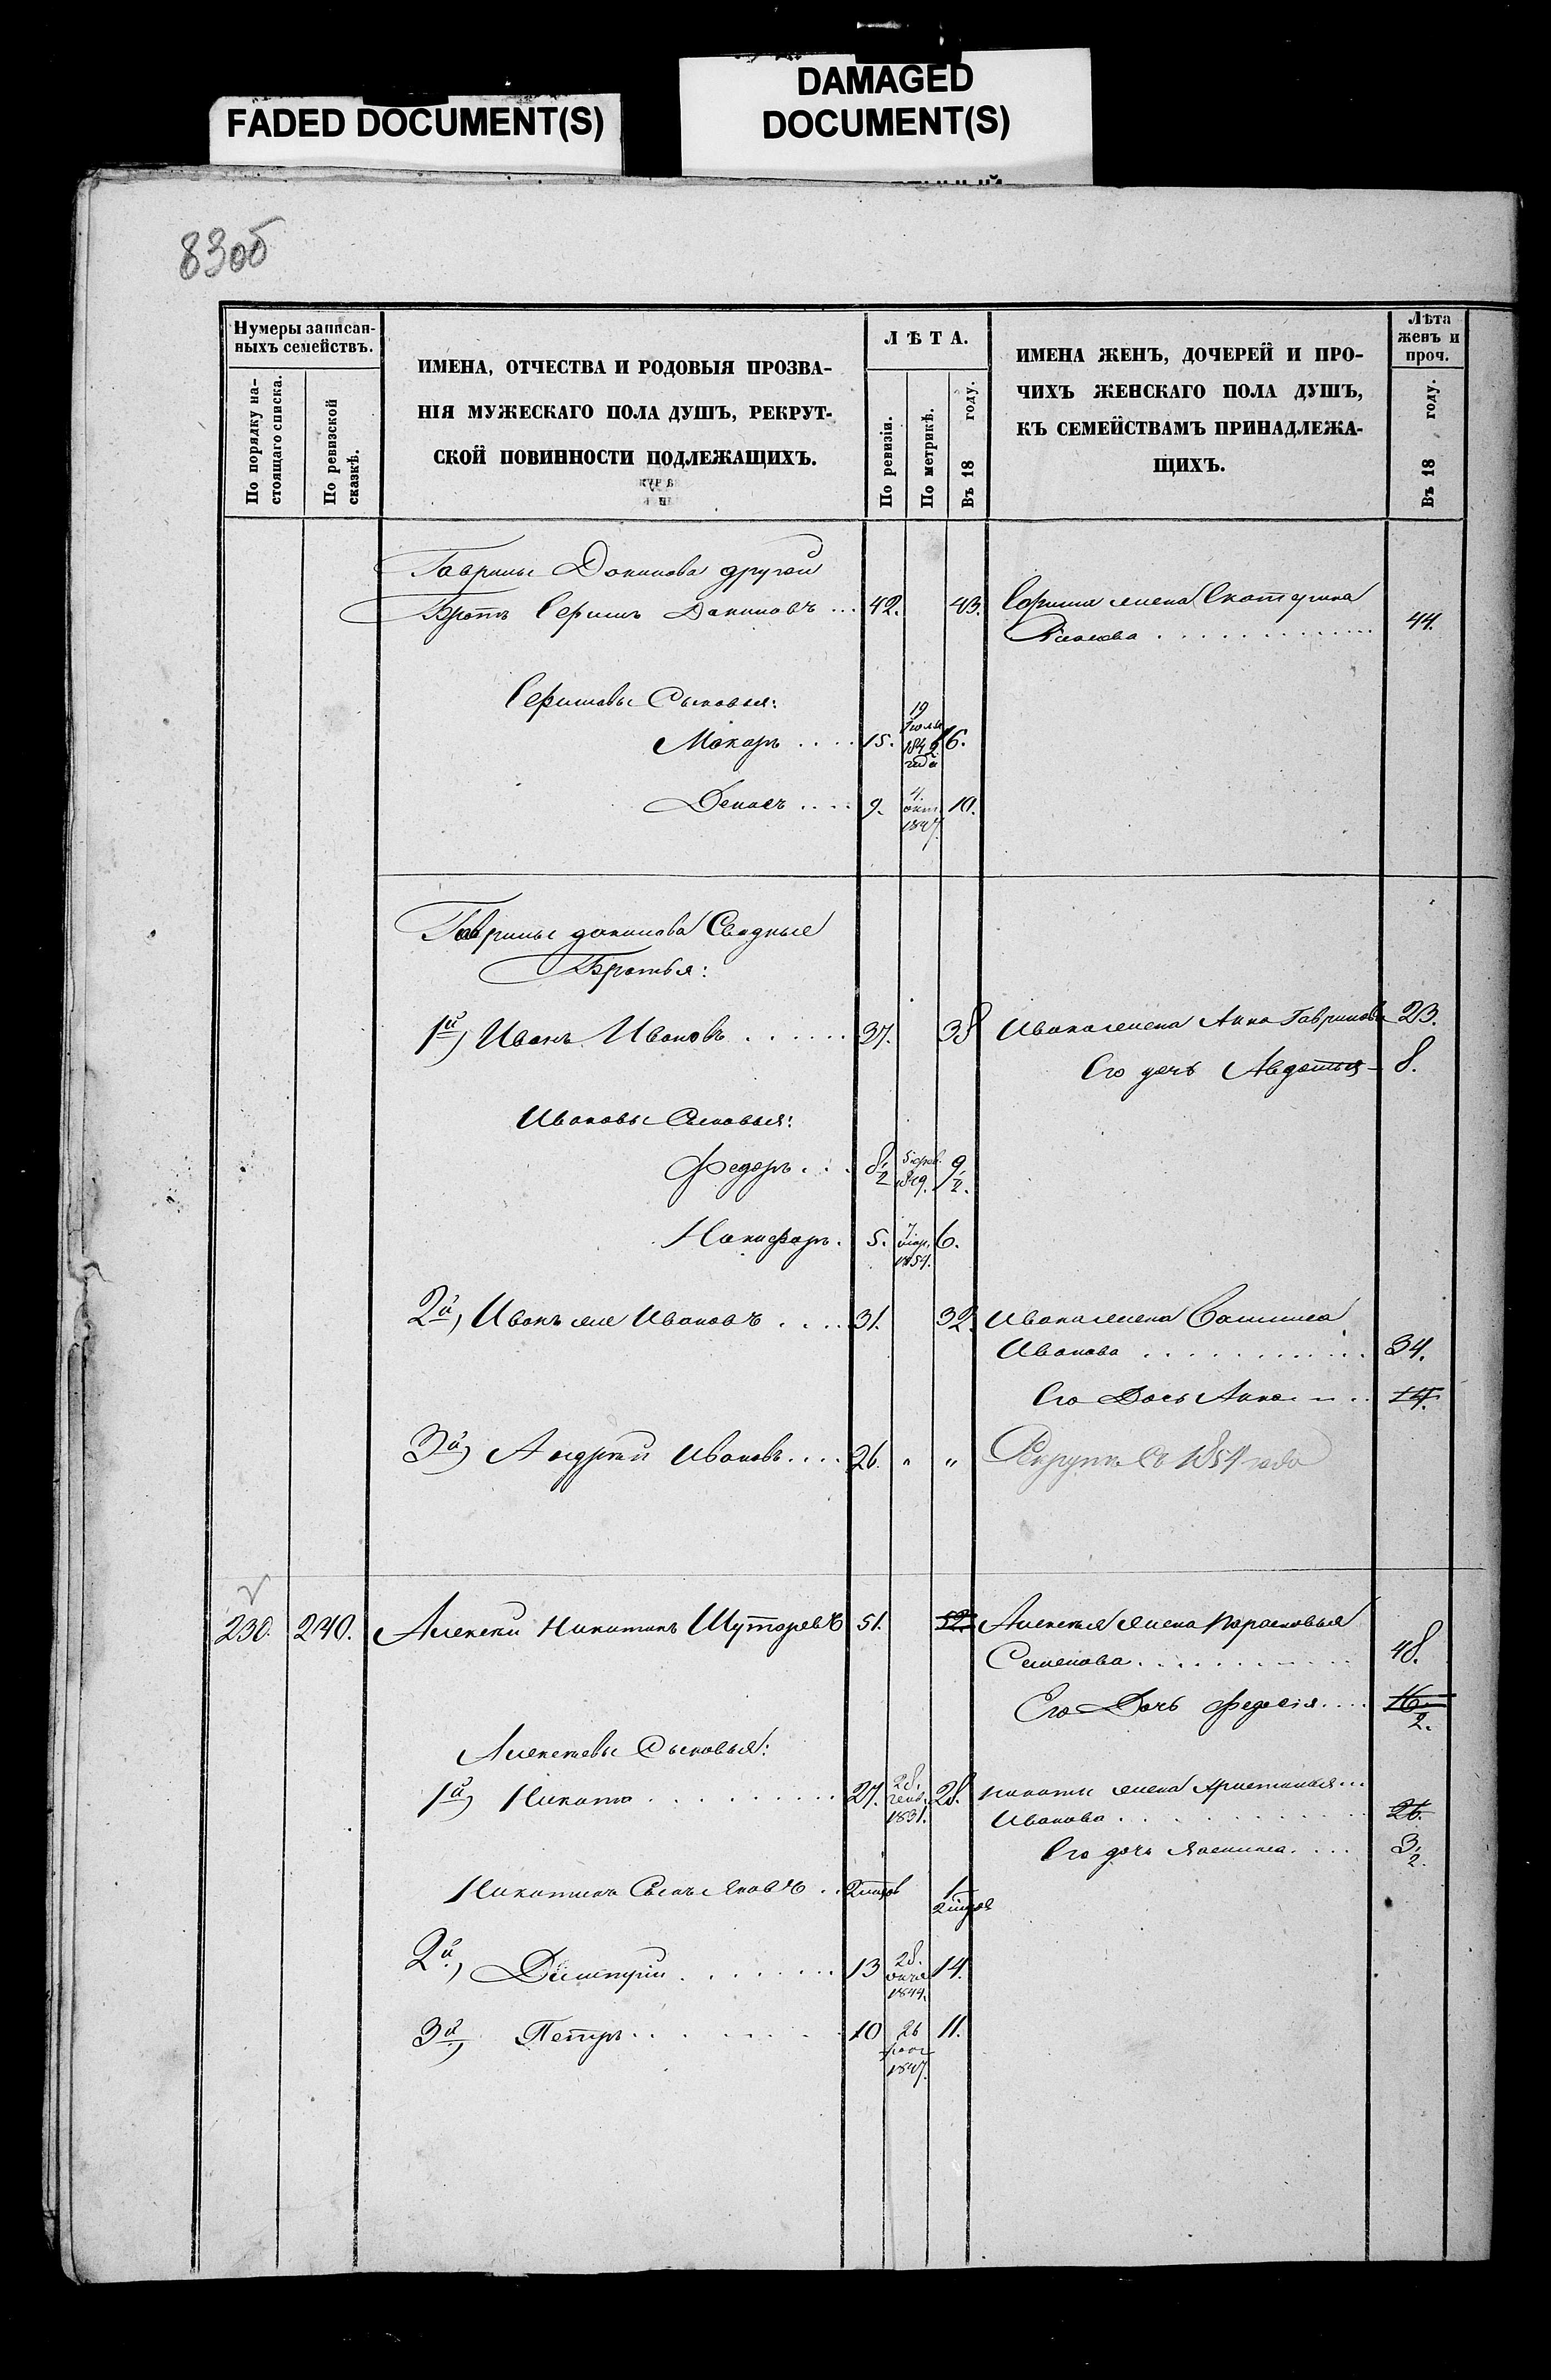 FADED DOCUMENT(S)
DAMAGED
DOCUMENT(S)
83об
Нумеры записан-
ныхъ семействъ.
По порядку на-
стоящаго списка.
По ревизской
сказкѣ.
ИМЕНА, ОТЧЕСТВА И РОДОВЫЯ ПРОЗВА-
НІЯ МУЖЕСКАГО ПОЛА ДУШЪ, РЕКРУТ-
СКОЙ ПОВИННОСТИ ПОДЛЕЖАЩИХЪ.
ЛѢТА.
По ревизіи.
По метрикѣ.
Въ 18 году.
ИМЕНА ЖЕНЪ, ДОЧЕРЕЙ И ПРО-
ЧИХЪ ЖЕНСКАГО ПОЛА ДУШЪ,
КЪ СЕМЕЙСТВАМЪ ПРИНАДЛЕЖА-
ЩИХЪ.
Лѣта
женъ и
проч.
Въ 18 году.
Гаврилы Данилова другой
Братъ Ефимъ Даниловъ ... 42. 43. Ефима жена Екатерина
44.
Ефимовы Сыновья:
Макаръ .... 15. 19 Іюля 1842 года 16.
Денисъ .... 9. 4 окт. 1847. 10.
Гаврилы данилова Сводные
Братья:
1й) Иванъ Ивановъ ...... 37. 38 Ивана жена Анна Гаврилова 23.
Его дочь Авдотья 8.
Ивановы Сыновья:
Федоръ ... 8/2 9/2.
Никифоръ. 5. 7 мар. 1854. 6.
2й, Иванъ же Ивановъ .... 31. 32. Ивана жена
Иванова ............ 34.
Его Дочь Анна 14.
3й) Андрей Ивановъ .... 26. " " Рекрутъ съ 1854 года
230. 240. Алексей Никитинъ Шуторевъ 51. 52. Алексея жена Парасковья
Семенова .......... 48.
Его Дочь Федосія .... 16/2.
Алексеевы Сыновья:
1й) Никита ......... 27. 28. генв. 1831. 28. Никиты жена Христинья ...
Иванова .......... 26.
Его дочь .... 3/2.
Никитинъ Сынъ Яковъ ..
2й, Дмитрій ....... 13 28. 1844. 14.
3й) Петръ ........ 10 26 1847. 11.